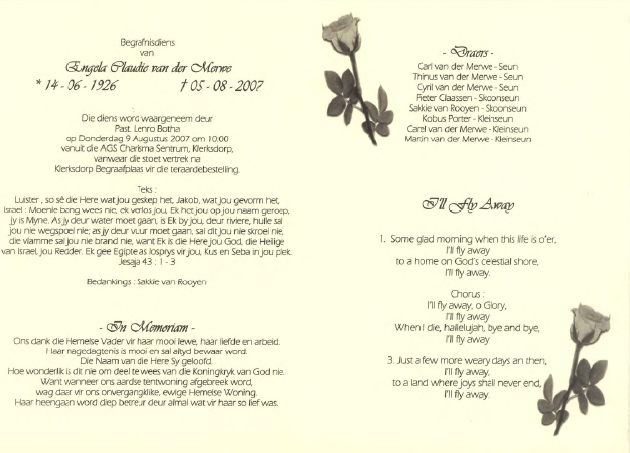 Begrafnisdiens
van
Engela Claudie van der Merwe
* 14 - 06 - 1926 † 05 - 08 - 2007
Die diens word waargeneem deur
Past. Lenro Botha
op Donderdag 9 Augustus 2007 om 10:00
vanuit die AGS Charisma Sentrum, Klerksdorp,
vanwaar die stoet vertrek na
Klerksdorp Begraafplaas vir die teraardebestelling.
Teks :
Luister , so sê die Here wat jou geskep het, Jakob, wat jou gevorm het,
Israel : Moenie bang wees nie, ek verlos jou, Ek het jou op jou naam geroep,
jy is Myne. As jy deur water moet gaan, is Ek by jou, deur riviere, hulle sal
jou nie wegspoel nie; as jy deur vuur moet gaan, sal dit jou nie skroei nie,
die vlamme sal jou nie brand nie, want Ek is die Here jou God, die Heilige
van Israel, jou Redder. Ek gee Egipte as losprys vir jou, Kus en Seba in jou plek.
Jesaja 43 : 1 - 3
Bedankings : Sakkie van Rooyen
- In Memoriam -
Ons dank die Hemelse Vader vir haar mooi lewe, haar liefde en arbeid.
Haar nagedagtenis is mooi en sal altyd bewaar word.
Die Naam van die Here Sy geloofd.
Hoe wonderlik is dit nie om deel te wees van die Koningkryk van God nie.
Want wanneer ons aardse tentwoning afgebreek word,
wag daar vir ons onverganklike, ewige Hemelse Woning.
Haar heengaan word diep betreur deur almal wat vir haar so lief was.
- Draers -
Carl van der Merwe - Seun
Thinus van der Merwe - Seun
Cyril van der Merwe - Seun
Pieter Claassen - Skoonseun
Sakkie van Rooyen - Skoonseun
Kobus Porter - Kleinseun
Carel van der Merwe - Kleinseun
Martin van der Merwe - Kleinseun
I'll Fly Away
1. Some glad morning when this life is o'er,
I'll fly away
to a home on God's celestial shore,
I'll fly away.
Chorus :
I'll fly away, o Glory,
I'll fly away
When I die, hallelujah, bye and bye,
I'll fly away
3. Just a few more weary days an then,
I'll fly away,
to a land where joys shall never end,
I'll fly away.